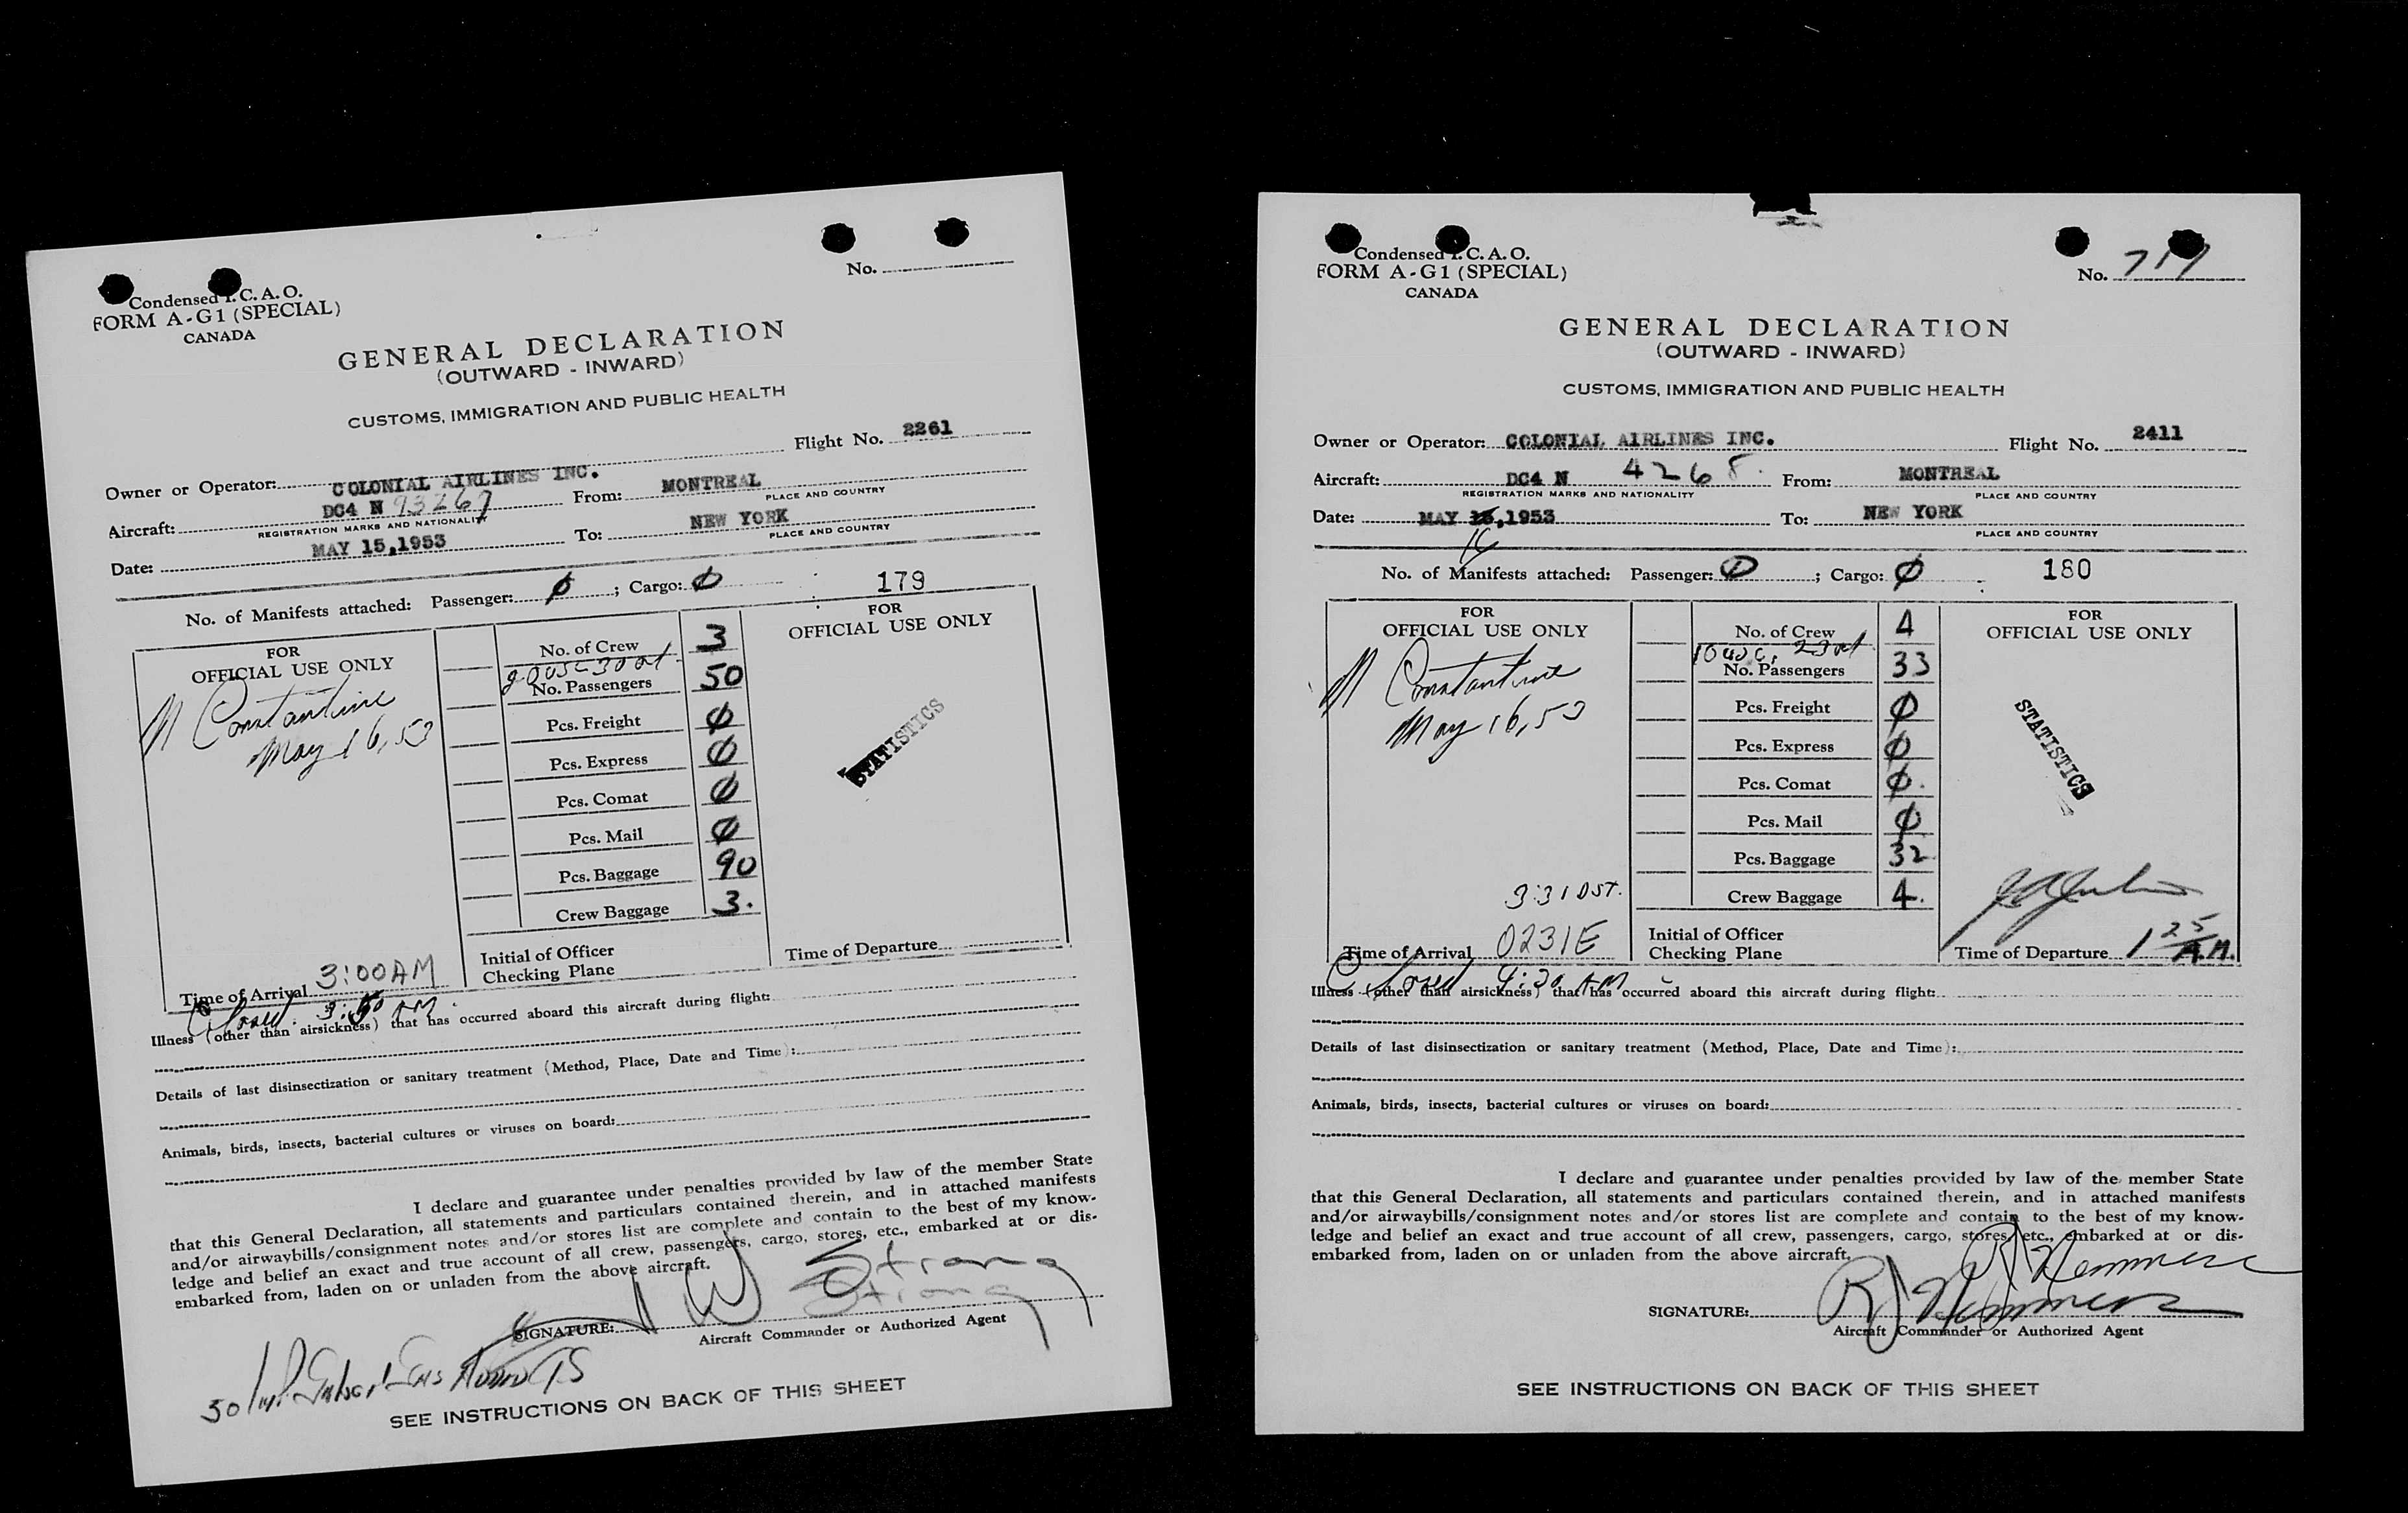 No.
Condensed I. C. A. O.
FORM A-G1 (SPECIAL)
CANADA
GENERAL DECLARATION
(OUTWARD - INWARD)
CUSTOMS, IMMIGRATION AND PUBLIC HEALTH
Owner or Operator: COLONIAL AIRLINES INC. Flight No. 2261
Aircraft: DC4 N 93267 From: MONTREAL
REGISTRATION MARKS AND NATIONALITY PLACE AND COUNTRY
Date: MAY 15,1953 To: NEW YORK
PLACE AND COUNTRY
No. of Manifests attached: Passenger: Ø ; Cargo: Ø 179
FOR
OFFICIAL USE ONLY
M Constantine
May 16, 53
No. of Crew 3
20 USC 30 al
No. Passengers 50
Pcs. Freight Ø
Pcs. Express Ø
Pcs. Comat Ø
Pcs. Mail Ø
Pcs. Baggage 90
Crew Baggage 3.
FOR
OFFICIAL USE ONLY
STATISTICS
Time of Arrival 3:00AM
Initial of Officer
Checking Plane
Time of Departure
Closed 3:50 AM
Illness (other than airsickness) that has occurred aboard this aircraft during flight:
Details of last disinsectization or sanitary treatment (Method, Place, Date and Time):
Animals, birds, insects, bacterial cultures or viruses on board:
I declare and guarantee under penalties provided by law of the member State
that this General Declaration, all statements and particulars contained therein, and in attached manifests
and/or airwaybills/consignment notes and/or stores list are complete and contain to the best of my know-
ledge and belief an exact and true account of all crew, passengers, cargo, stores, etc., embarked at or dis-
embarked from, laden on or unladen from the above aircraft.
Strong
SIGNATURE: Strong
Aircraft Commander or Authorized Agent
SEE INSTRUCTIONS ON BACK OF THIS SHEET
Condensed I. C. A. O.
FORM A-G1 (SPECIAL)
CANADA
No. 717
GENERAL DECLARATION
(OUTWARD - INWARD)
CUSTOMS, IMMIGRATION AND PUBLIC HEALTH
Owner or Operator: COLONIAL AIRLINES INC. Flight No. 2411
Aircraft: DC4 N 4268 From: MONTREAL
REGISTRATION MARKS AND NATIONALITY PLACE AND COUNTRY
Date: MAY 15,1953 To: NEW YORK
16
PLACE AND COUNTRY
No. of Manifests attached: Passenger: Ø ; Cargo: Ø 180
FOR
OFFICIAL USE ONLY
M Constantine
May 16, 53
3:31 DST.
No. of Crew 4
10 USC, 23 al
No. Passengers 33
Pcs. Freight Ø
Pcs. Express Ø
Pcs. Comat Ø.
Pcs. Mail Ø
Pcs. Baggage 32
Crew Baggage 4.
FOR
OFFICIAL USE ONLY
STATISTICS
Time of Arrival 0231E
Initial of Officer
Checking Plane
Time of Departure 1 25 A.M.
Closed 4:20 AM
Illness (other than airsickness) that has occurred aboard this aircraft during flight:
Details of last disinsectization or sanitary treatment (Method, Place, Date and Time):
Animals, birds, insects, bacterial cultures or viruses on board:
I declare and guarantee under penalties provided by law of the member State
that this General Declaration, all statements and particulars contained therein, and in attached manifests
and/or airwaybills/consignment notes and/or stores list are complete and contain to the best of my know-
ledge and belief an exact and true account of all crew, passengers, cargo, stores, etc., embarked at or dis-
embarked from, laden on or unladen from the above aircraft.
SIGNATURE: RJ Nemmers
Aircraft Commander or Authorized Agent
SEE INSTRUCTIONS ON BACK OF THIS SHEET